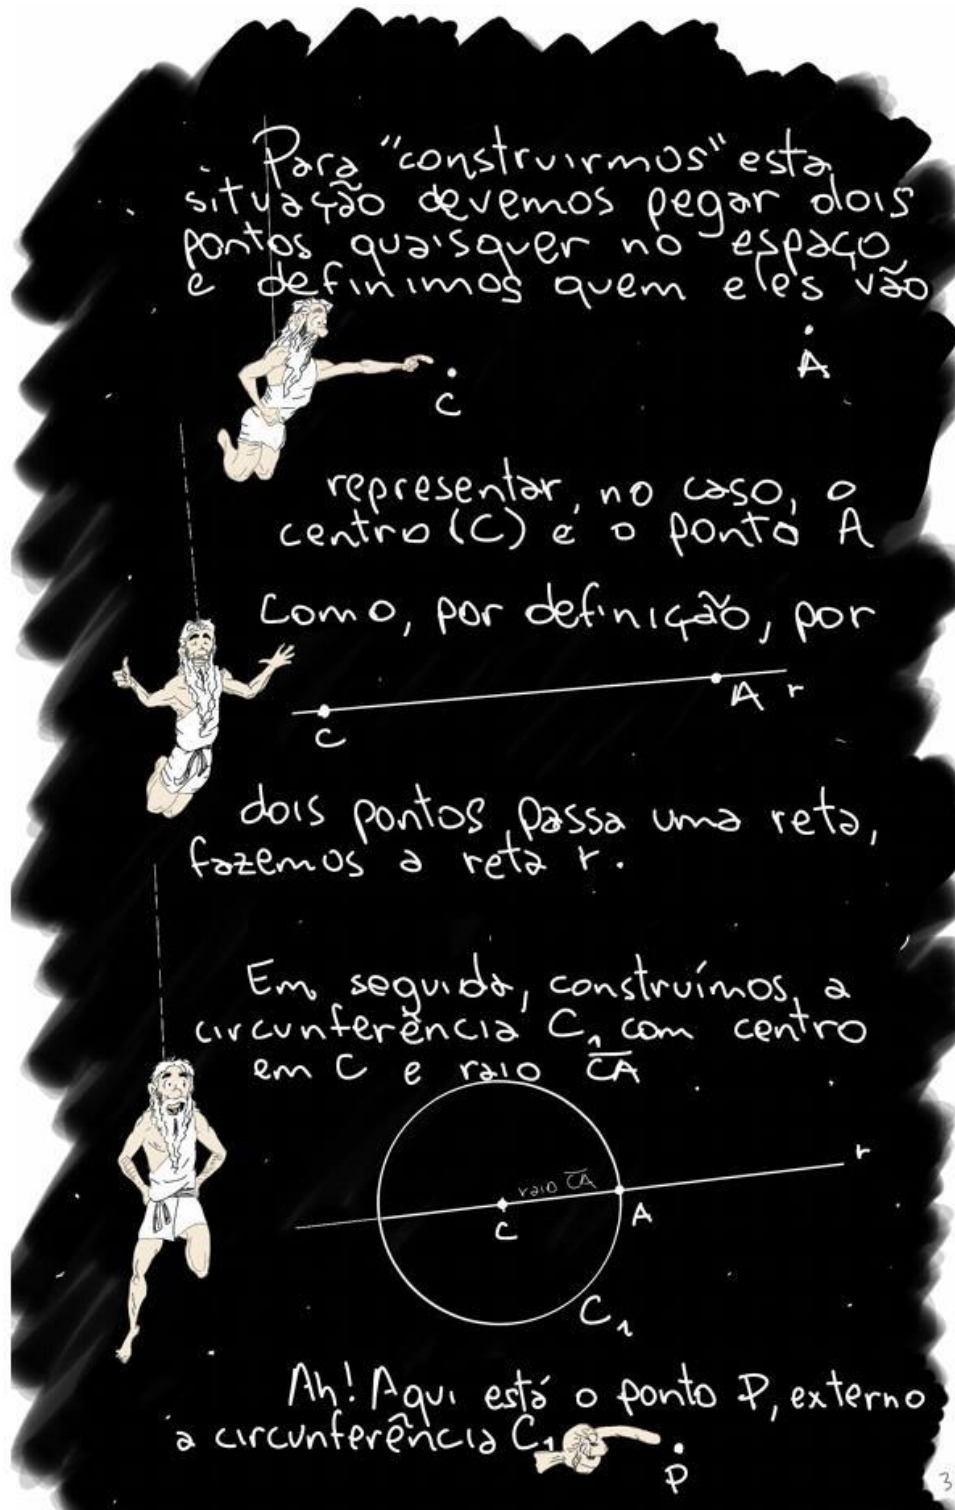 Para "construirmos" esta
situação devemos pegar dois
pontos quaisquer no espaço
e definimos quem eles vão
A
C
representar, no caso, o
centro (C) e o ponto A
Como, por definição, por
C A r
dois pontos passa uma reta,
fazemos a reta r.
Em seguida, construímos a
circunferência C₁ com centro
em C e raio C̅A̅
r
raio C̅A̅
C A
C₁
Ah! Aqui está o ponto P, externo
a circunferência C₁
P
3